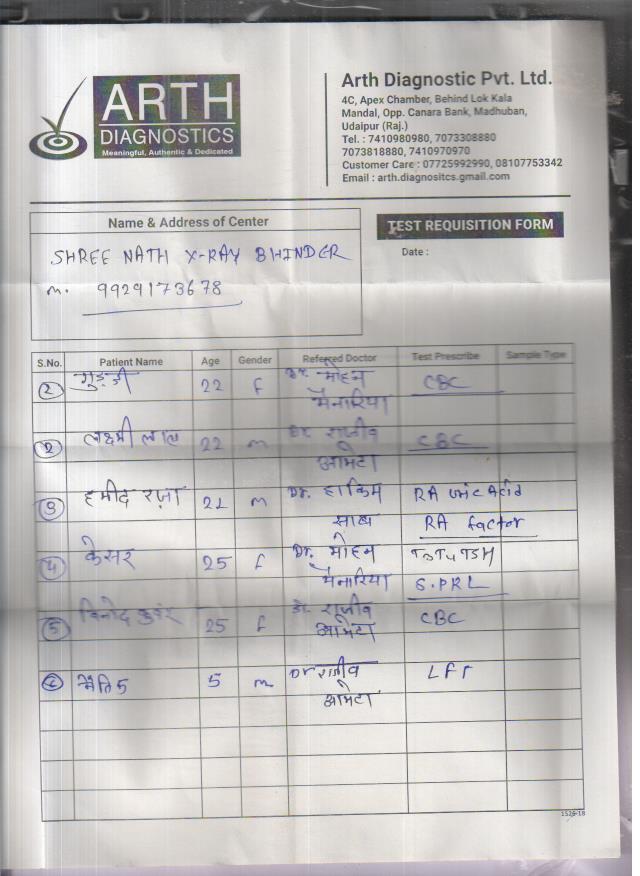 ARTH
DIAGNOSTICS
Meaningful, Authentic & Dedicated
Arth Diagnostic Pvt. Ltd.
4C, Apex Chamber, Behind Lok Kala
Mandal, Opp. Canara Bank, Madhuban,
Udaipur (Raj.)
Tel. : 7410980980, 7073308880
7073818880, 7410970970
Customer Care : 07725992990, 08107753342
Email : arth.diagnositcs.gmail.com
Name & Address of Center
TEST REQUISITION FORM
SHREE NATH X-RAY BHINDER
Date :
m. 9929173678
S.No. Patient Name Age Gender Referred Doctor Test Prescribe Sample Type
22 f Dr. मोहन CBC
मैनारिया
2 लक्ष्मी लाल 22 m Dr राजीव CBC
आमेटा
3 हमीद रज़ा 21 m Dr. हाकिम RA Uric Acid
साब RA factor
4 केसर 25 f Dr. मोहन T3T4TSH
मैनारिया S.PRL
5 विनोद कुवंर 25 f डॉ. राजीव CBC
आमेटा
5 m Dr राजीव LFT
आमेटा
1526-18